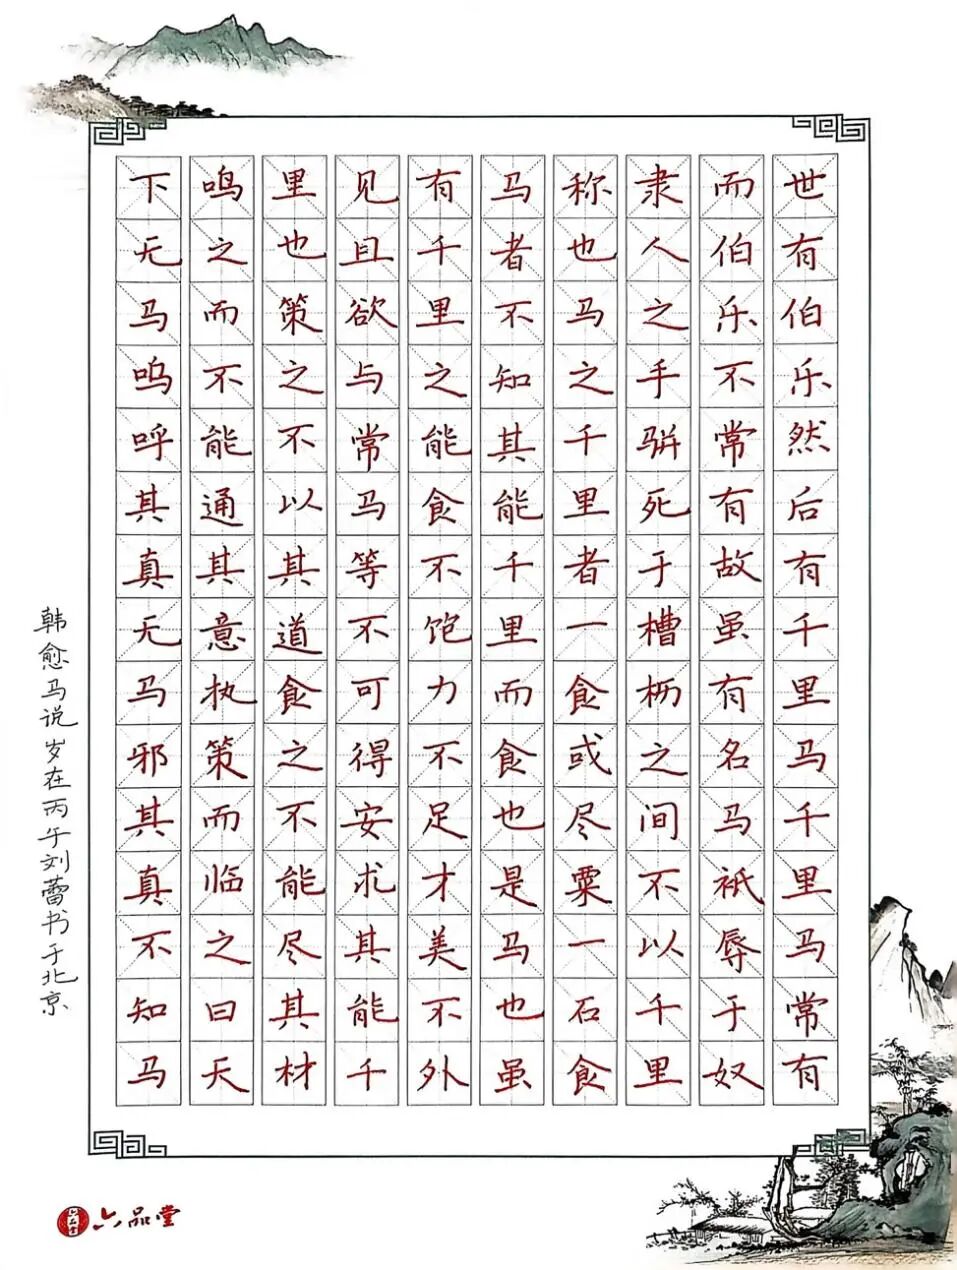 世有伯乐然后有千里马千里马常有
而伯乐不常有故虽有名马祗辱于奴
隶人之手骈死于槽枥之间不以千里
称也马之千里者一食或尽粟一石食
马者不知其能千里而食也是马也虽
有千里之能食不饱力不足才美不外
见且欲与常马等不可得安求其能千
里也策之不以其道食之不能尽其材
鸣之而不能通其意执策而临之曰天
下无马呜呼其真无马邪其真不知马
韩愈马说 岁在丙午刘蕾书于北京
六品堂